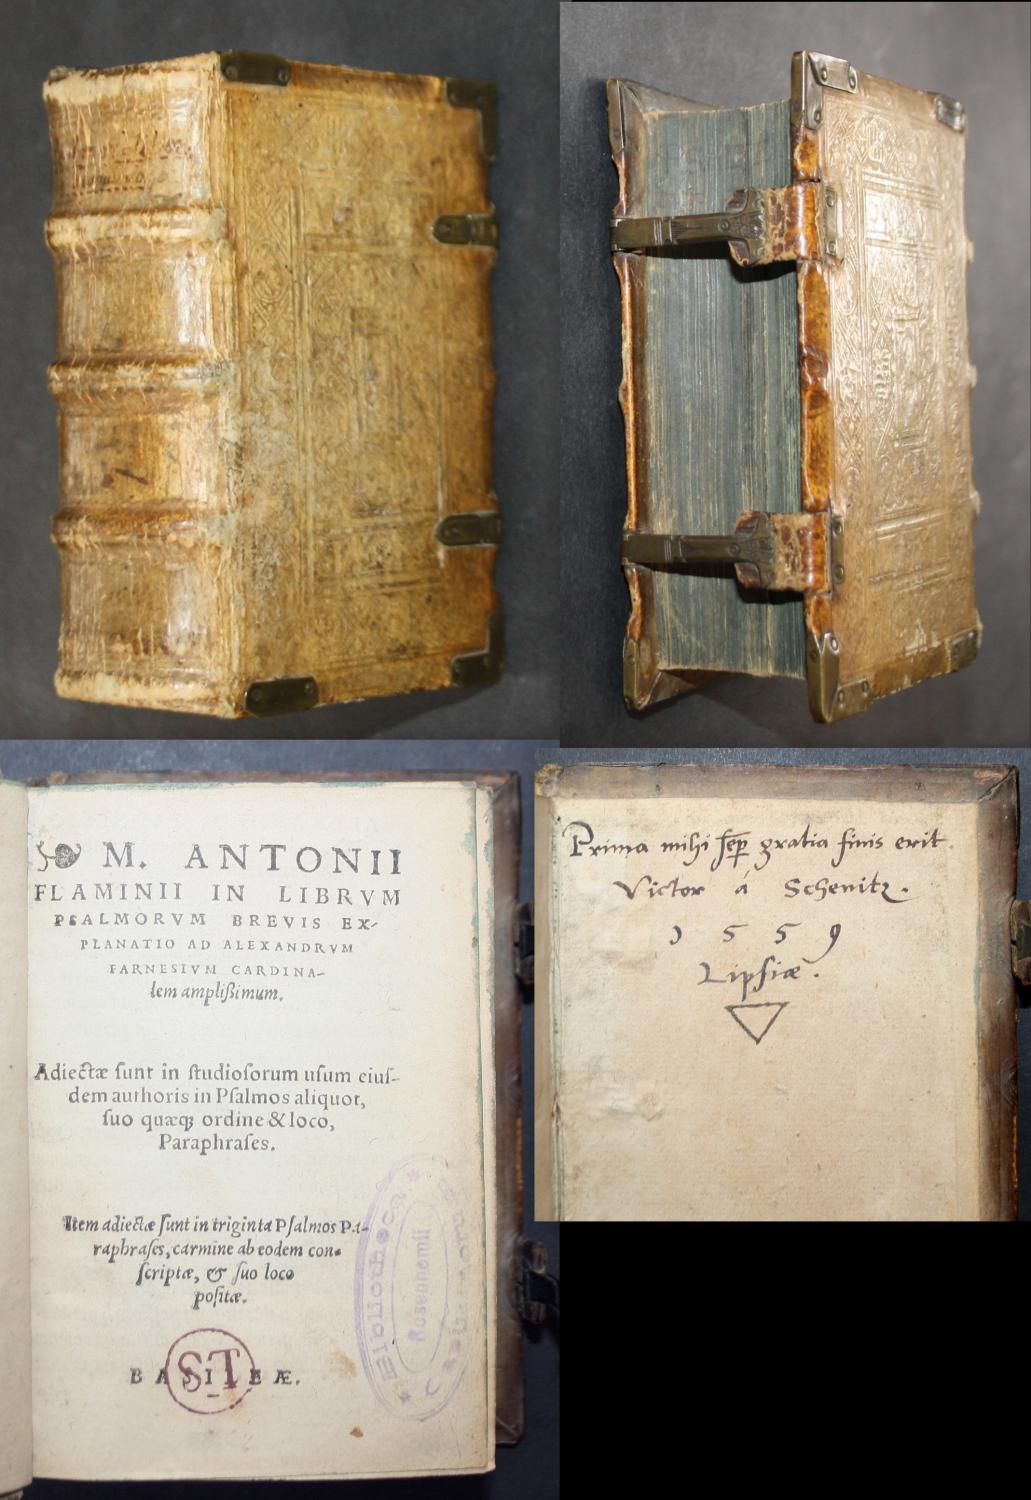 M. ANTONII
FLAMINII IN LIBRVM
PSALMORVM BREVIS EX-
PLANATIO AD ALEXANDRVM
FARNESIVM CARDINA-
lem ampliſsimum.
Adiectæ ſunt in ſtudioſorum uſum eiuſ-
dem authoris in Pſalmos aliquot,
ſuo quæq; ordine & loco,
Paraphraſes.
Item adiectæ ſunt in triginta Pſalmos Pa-
raphraſes, carmine ab eodem con-
ſcriptæ, & ſuo loco
poſitæ.
BASILEÆ.
ST
Bibliotheca
Rosenhemii
Prima mihi ſep̄ gratia finis erit.
Victor á Schenitz.
1559
Lipſiæ.